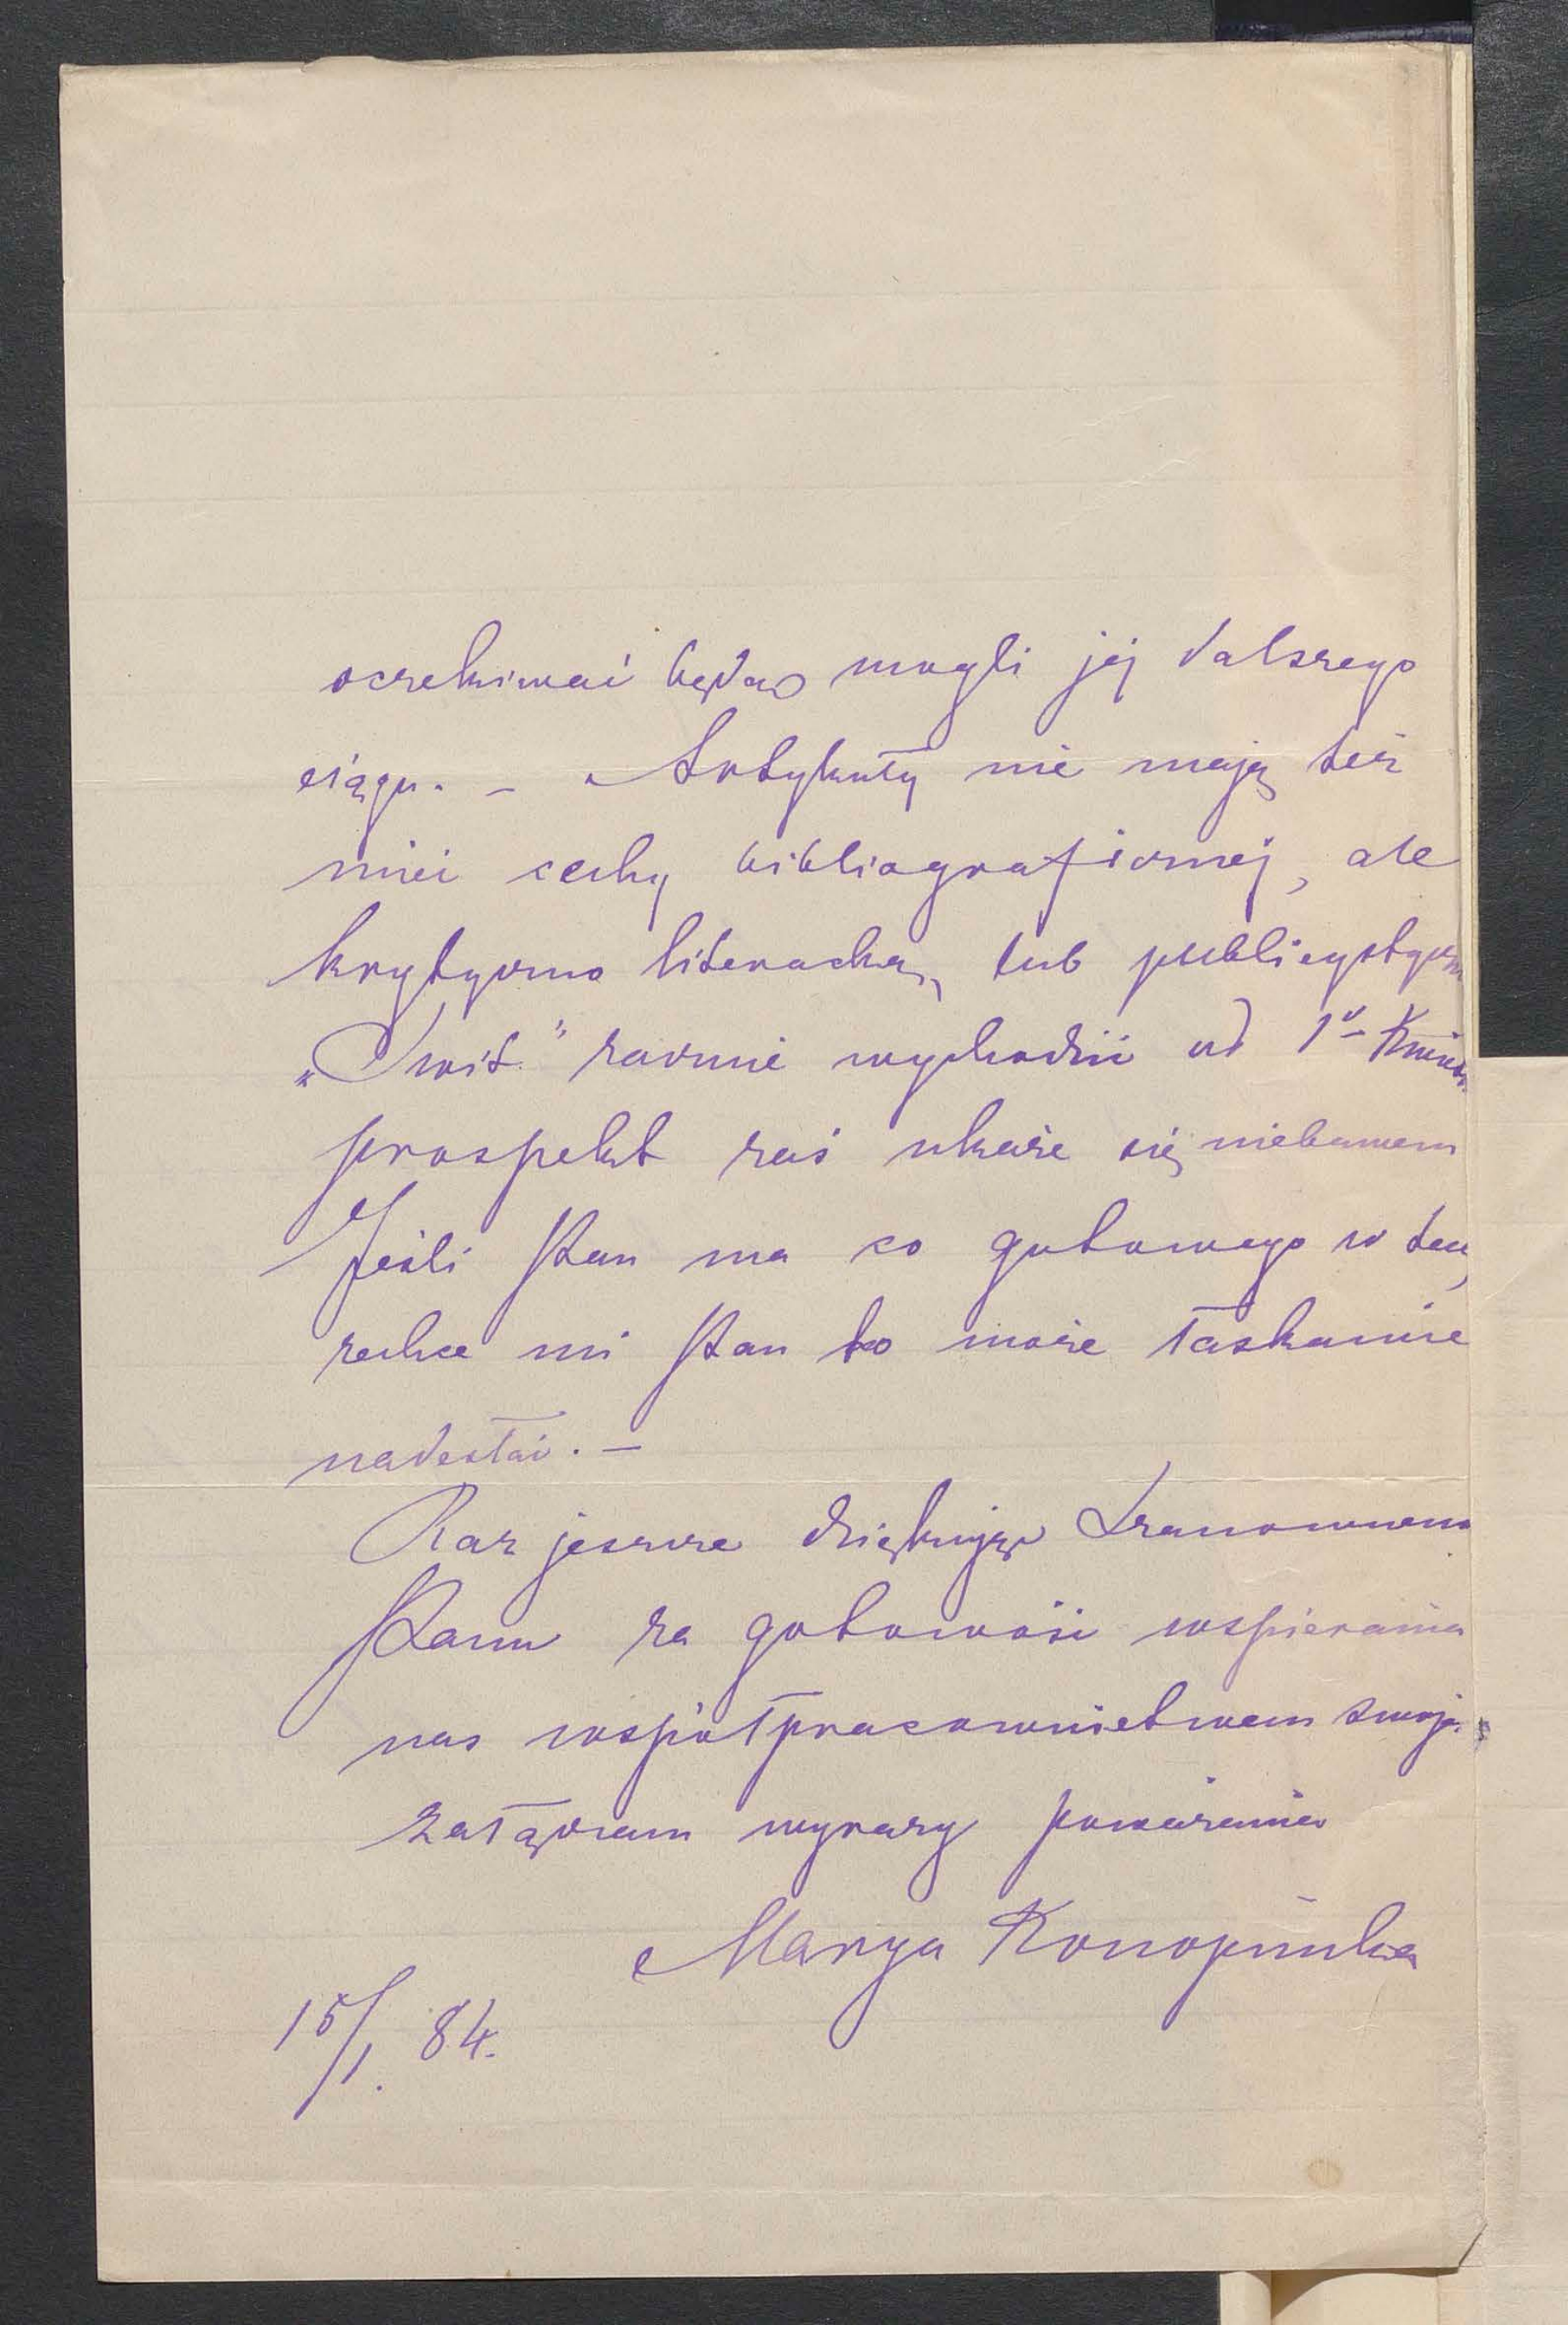 oczekiwać będą mogli jej dalszego
ciągu. – Artykuły nie mają też
mieć cechy bibliograficznej, ale
krytyczno literacką, lub publicystyczn
„Świt" zacznie wychodzić od 1º Kwiet.
prospekt zaś ukaże się niebawem
Jeśli Pan ma co gotowego w
zechce mi Pan to może łaskawie
nadesłać. –
Raz jeszcze dziękując Szanownemu
Panu za gotowość wspierania
nas współpracownictwem swoje.
załączam wyrazy poważania
Marya Konopnicka
15/1. 84.